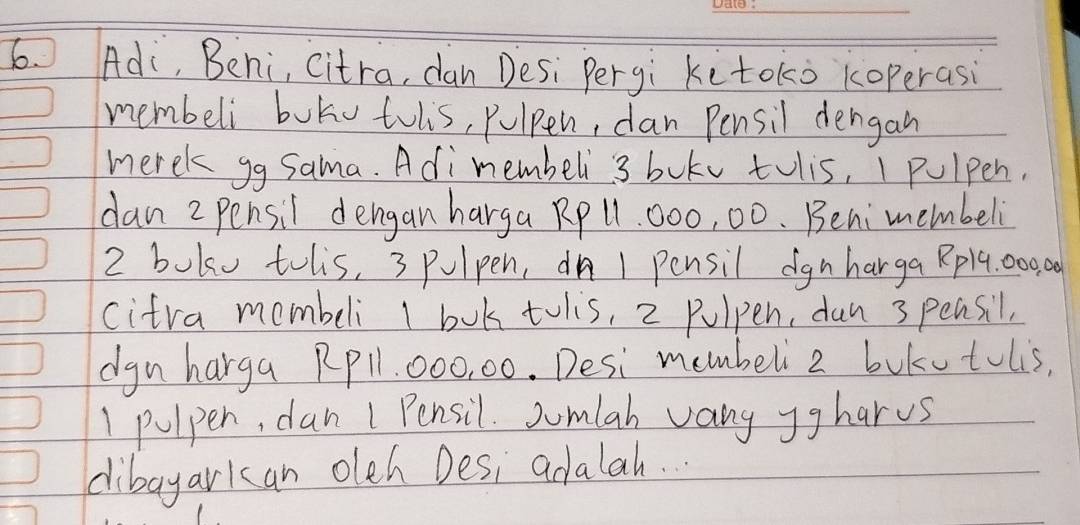 Date :
6. Adi, Beni, Citra, dan Desi Pergi ketoko koperasi
membeli buku tulis, Pulpen, dan Pensil dengan
merek yg sama. Adi membeli 3 buku tulis, 1 pulpen,
dan 2 pensil dengan harga Rp 11.000,00. Beni membeli
2 buku tulis, 3 pulpen, dn 1 pensil dgn harga Rp14.000,00
Citra membeli 1 buk tulis, 2 pulpen, dan 3 pensil,
dgn harga Rp11.000,00. Desi membeli 2 buku tulis,
1 pulpen, dan 1 Pensil. Jumlah uang yg harus
dibayarkan oleh Desi adalah...